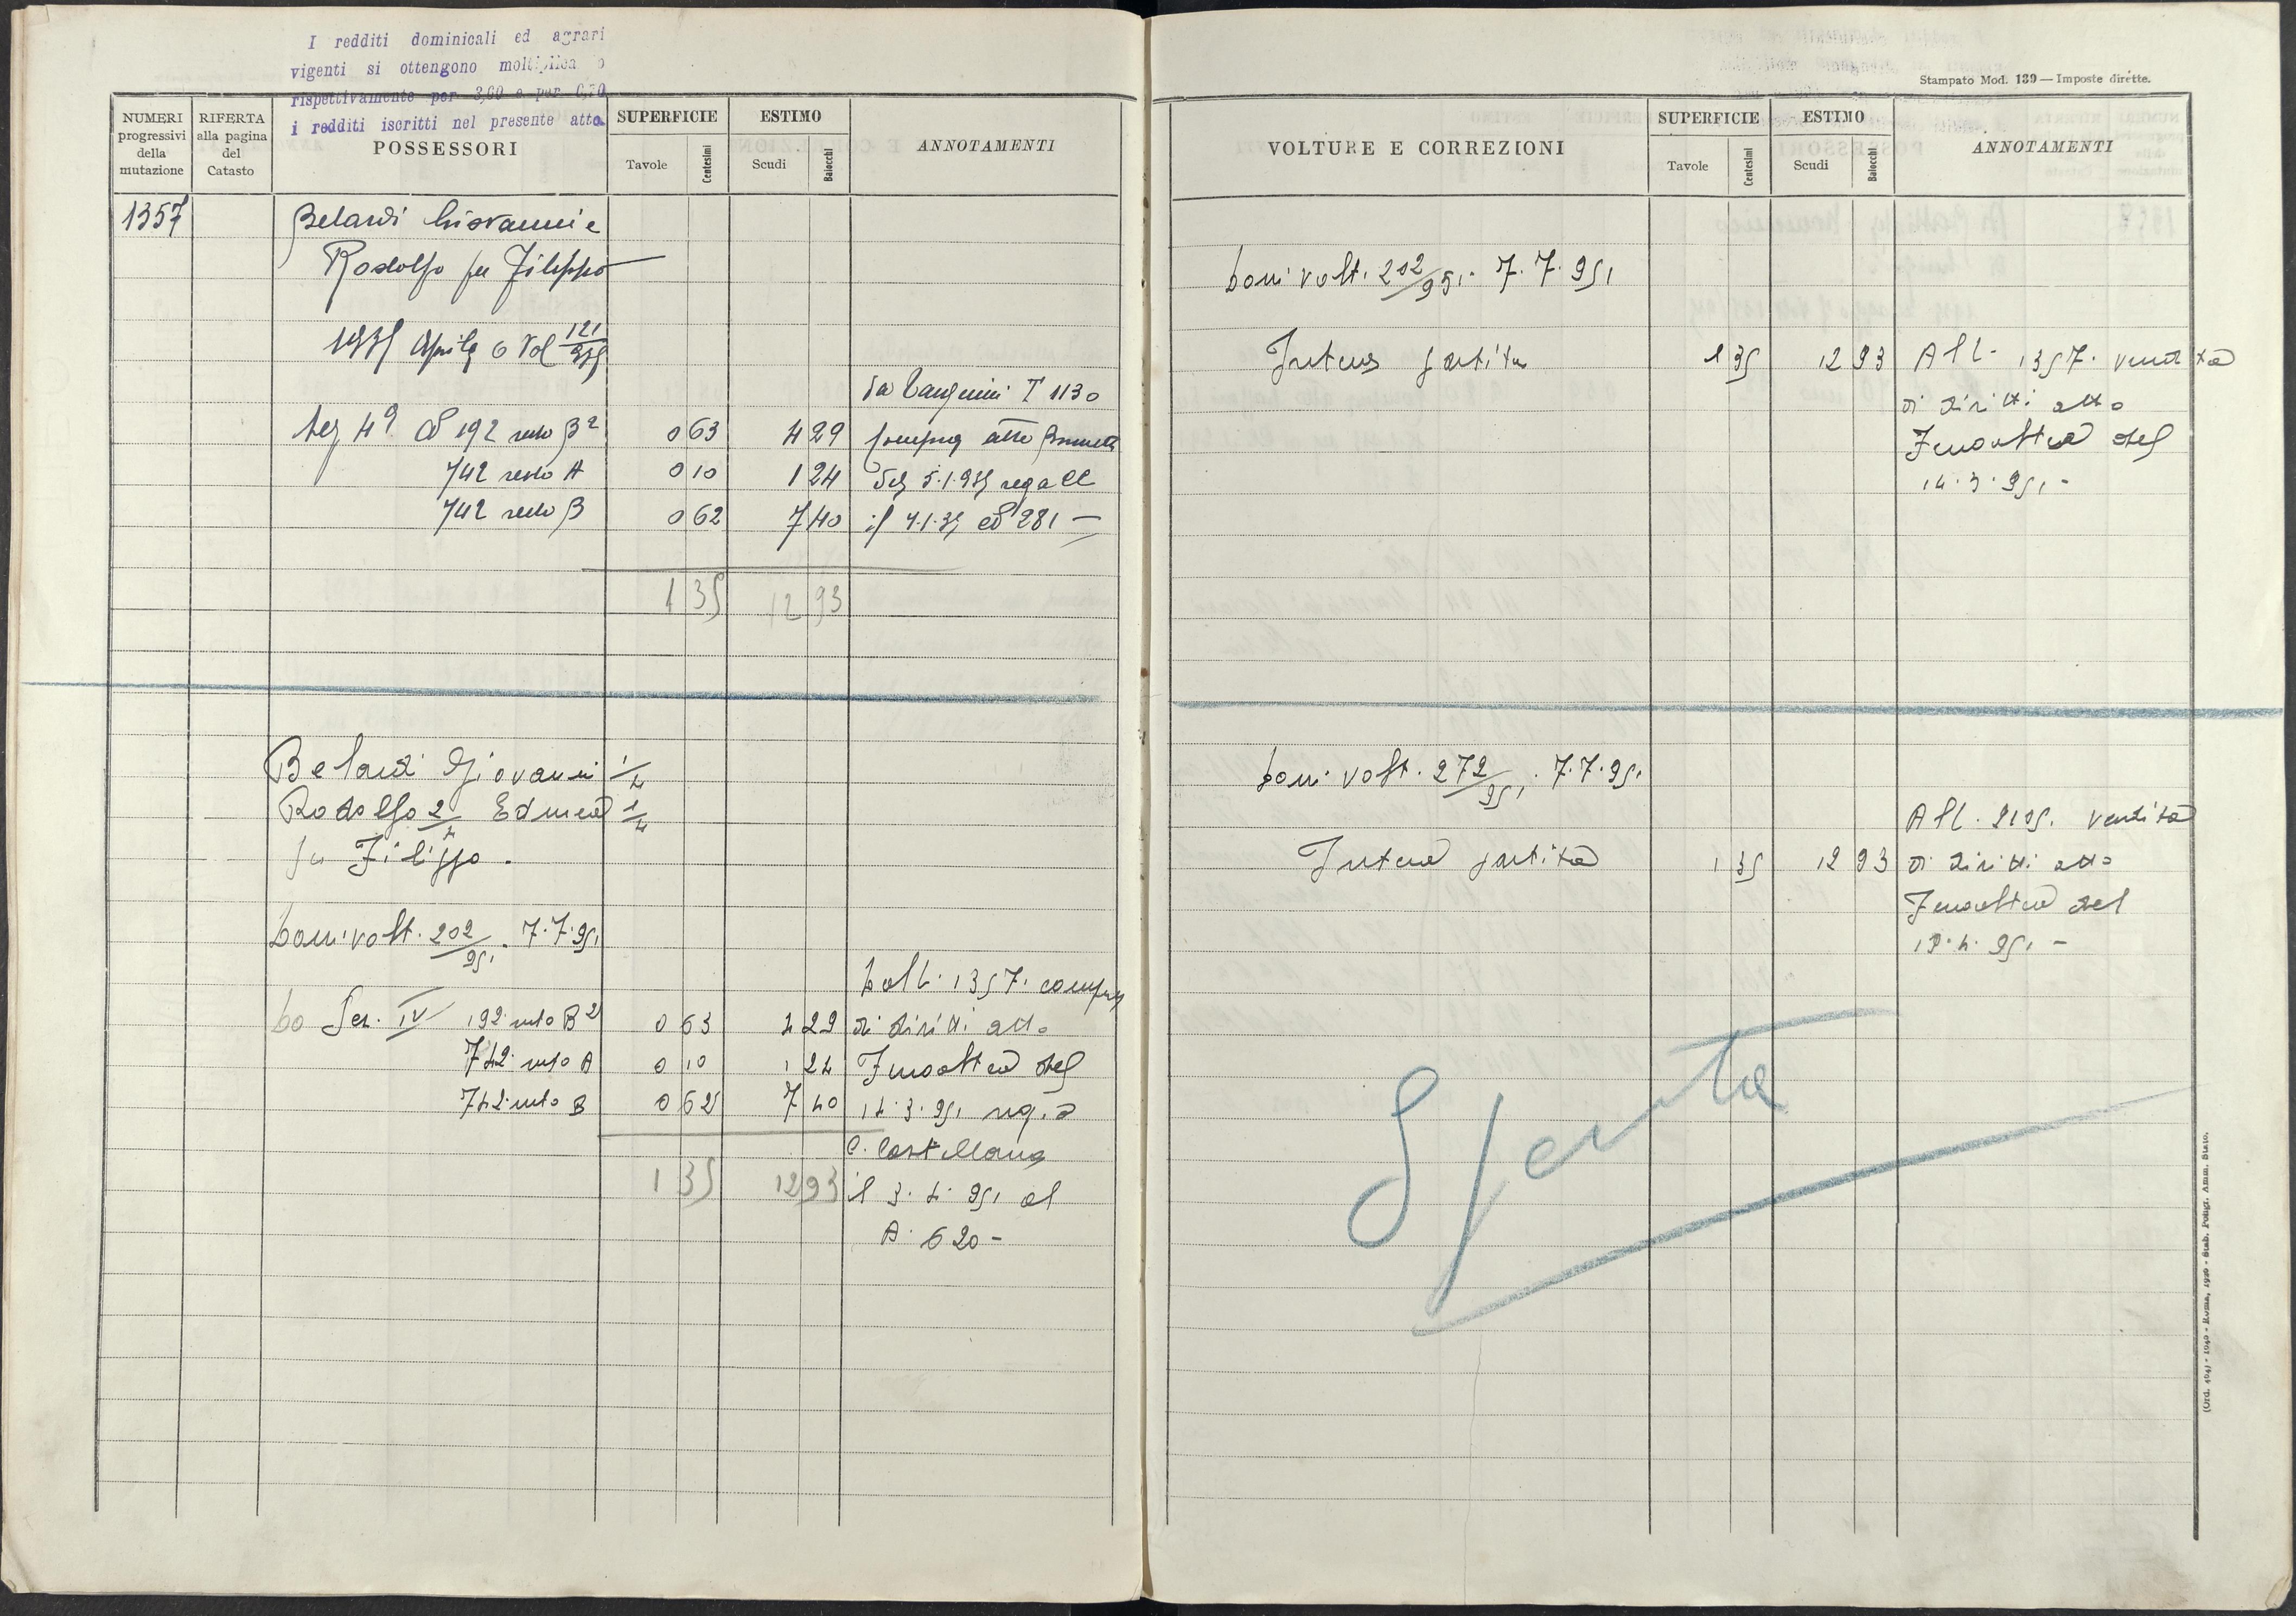 I redditi dominicali ed agrari
vigenti si ottengono
rispettivamente per 3,60 e per 6,70
i redditi iscritti nel presente atto
NUMERI progressivi della mutazione
RIFERTA alla pagina del Catasto
POSSESSORI
SUPERFICIE
Tavole
Centesimi
ESTIMO
Scudi
Baiocchi
ANNOTAMENTI
1357
Belardi Giovanni e
Rodolfo fu Filippo
1935 Aprile 6 Vol 121/935
da T 1130
Sez 4ª 192 resto B2 0 63 4 29 atto
742 resto A 0 10 1 24 del 5.1.935 reg a CC
742 resto B 0 62 7 40 il 281 —
1 35 12 93
Belardi Giovanni 1/4
Rodolfo 2/4 Edmea 1/4
fu Filippo.
volt. 202/951. 7.7.951
1357. compra
Sez. IV 192 resto B2 0 63 4 29 di diritti atto
742 resto A 0 10 1 24 del
742 resto B 0 62 7 40 14.3.951 reg. a
1 35 12 93
C. Castellana
il 3.4.951 al
620 -
Stampato Mod. 139 — Imposte dirette.
VOLTURE E CORREZIONI
SUPERFICIE
Tavole
Centesimi
ESTIMO
Scudi
Baiocchi
ANNOTAMENTI
volt. 202/951. 7.7.951
Intera partita 1 35 12 93 All. 1357. vendita
di diritti atto
del
14.3.951 -
volt. 272/951. 7.7.951
All. vendita
Intera partita 1 35 12 93 di diritti atto
del
951 -
Spenta